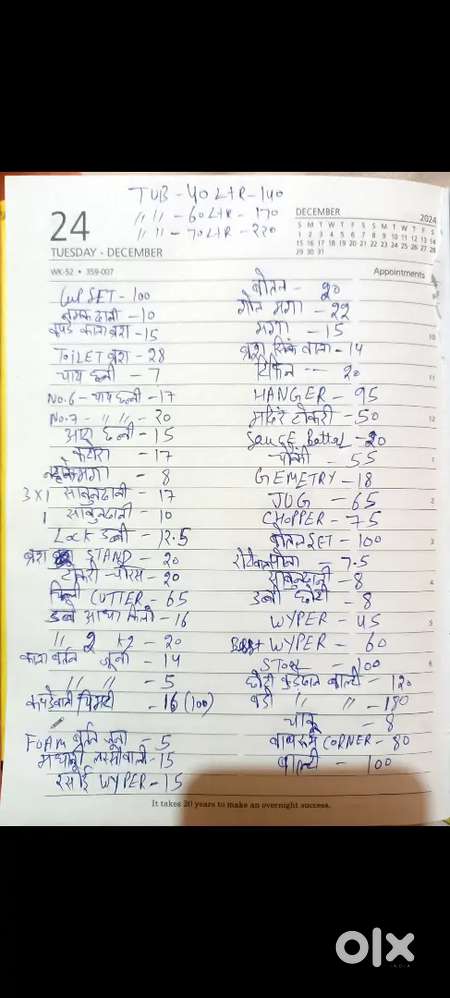 TUB - 40 LTR - 140
〃 〃 - 60 LTR - 170
〃 〃 - 70 LTR - 220
24
TUESDAY - DECEMBER
WK-52 • 359-007
DECEMBER 2024
S M T W T F S S M T W T F S
1 2 3 4 5 6 7 8 9 10 11 12 13 14
15 16 17 18 19 20 21 22 23 24 25 26 27 28
29 30 31
Appointments
CUP SET - 100
नमक दानी - 10
कपडे काला ब्रश - 15
TOiLET ब्रश - 28
चाय छन्नी - 7
No.6 - चाय छन्नी - 17
No.7 - 〃 〃 - 20
आटा छन्नी - 15
कटोरा - 17
मगा - 8
3X1 साबुनदानी - 17
1 साबुनदानी - 10
LOCK डब्बी - 12.5
ब्रश STAND - 20
टोकरी - चोरस - 20
CUTTER - 65
डब्बे आधा किलो - 16
〃 2 KG - 20
काला बर्तन जूना - 14
〃 〃 - 5
कपडेवाली चिमटी - 16 (100)
FOAM बर्तन जूना - 5
मथानी लस्सीवाली - 15
रसोई WYPER - 15
बोतल - 20
गोल मगा - 22
मगा - 15
ब्रश सिंक वाला - 14
टिफिन - 20
HANGER - 95
मंदिर टोकरी - 50
SauSE Bottal - 20
चौकी - 55
GEMETRY - 18
JUG - 65
CHOPPER - 75
बोतल SET - 100
- 7.5
साबुनदानी - 8
डब्बी छोटी - 8
WYPER - 45
Best WYPER - 60
STOOL - 100
छोटी कुडेदान बाल्टी - 120
बडी 〃 〃 - 180
चाकू - 8
बाथरूम CORNER - 80
बाल्टी - 100
9
10
11
12
1
2
3
4
5
6
It takes 20 years to make an overnight success.
olx
INDIA